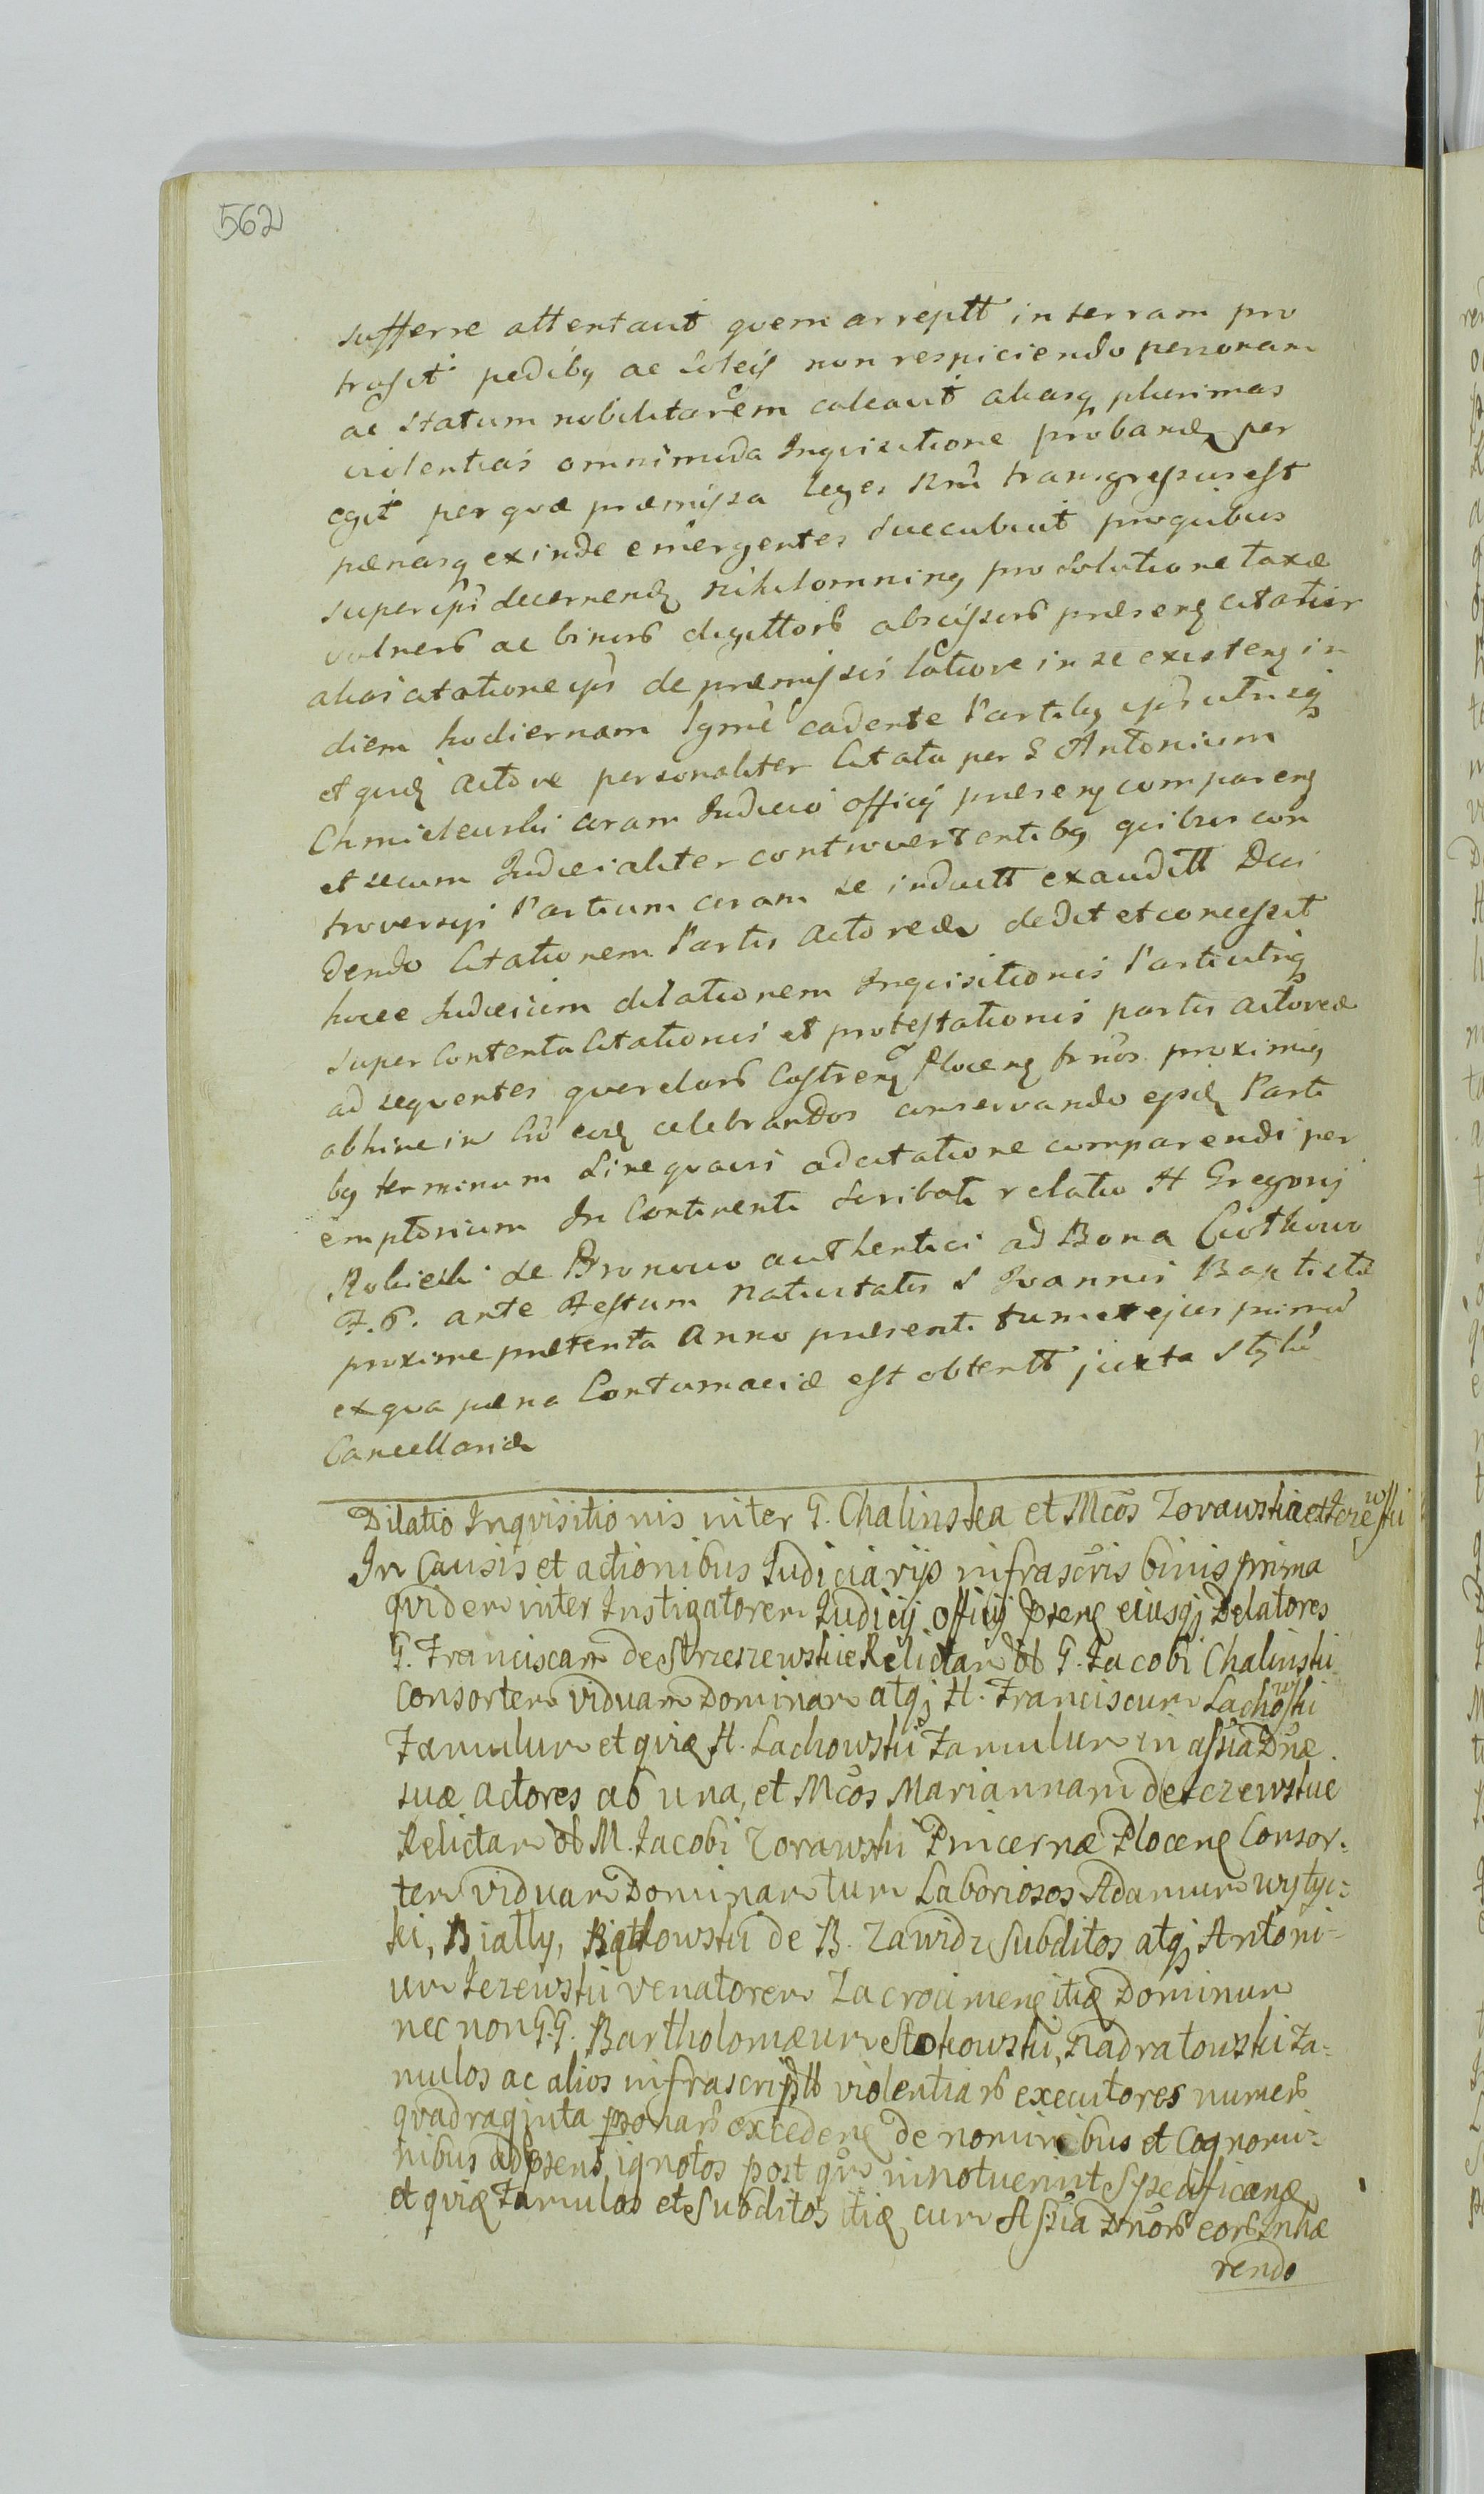 562
sufferre attentavit quem arreptt in terram pro
trusit pedibq ac soleis non respiciendo personam
ac statum nobilitarem calcavit aliasq plurimas
violentias omnimoda Inquisitione probandq per
egit per quæ præmissa leges Rni transgressus est
pænasq exinde emergentes succubuit pro quibus
super ipso decernendq nihilominusq pro solutione taxæ
vulnerб ac binorб digittorб abscissorб presenq citatur
alias citatione ipsi de præmissis latiore in se existenq in
diem hodiernam lgme cadente Partibq ipsis utrisq
et quidq Actore personaliter Citato per G Antonium
Chmielewski coram Judicio officij presenq comparenq
et secum Judicialiter controvertentibq quibus con
troversijs Partium coram se inductt exauditt Deci
dendo Citationem Partis Actoreæ dedit et concessit
hocce Judicium dilationem Inquisitionis Parti utriq
super contenta Citationis et protestationis partis actoreæ
ad sequentes querelarб Castrenq Plocenq trnos proximiq
abhinc in Cō eodq celebrandos conservando ejsdq Parti
bq terminum sine quavis adcitatione comparendi per
emptorium In Continenti scribati relatio H Gregorij
Rokicki de Bronowo authentici ad Bona Ciothowo
F. 6. ante Festum Nativitatis S Joannis Baptistæ
proxime præterita Anno presenti tum et ejus primæ
ex qua pæna Contumaciæ est obtentt juxta stylū
Cancellariæ
Dilatio Inquisitionis inter G. Chalinska et Mcos Zorawska et Jezewski
In Causis et actionibus Judiciarijs infrascris binis prima
quidem inter Instigatorem Judicij officij psenq eiusqz Delatores
G. Franciscam de Strzeszewskie Relictam ōb G. Jacobi Chalinski
Consortem viduam Dominam atqz H. Franciscum Lachowski
Famulum et quidq H. Lachowski Famulum in assia Dnæ
suæ Actores ab una, et Mcos Mariannam de Jezewskie
Relictam ōb M. Jacobi Zorawski Pincernæ Plocenq Consor-
tem viduam Dominam tum Laboriosos Adamum wytyc-
ki, Bially, Biątkowski de B. Zawidz Subditos atqz Antoni-
um Jezewski venatorem Zacrocimenq itidq Dominum
nec non G.G. Bartholomæum Stokowski, Nadratowski Fa-
mulos ac alios infrascriptt violentiarб executores numerб
quadraginta psonarб excedenq de nominibus et Cognomi-
nibus ad psens ignotos post qm innotuerint specificanq
et quidq Famulos et Subditos itidq cum Assia Dnorб eorб inhæ
rendo